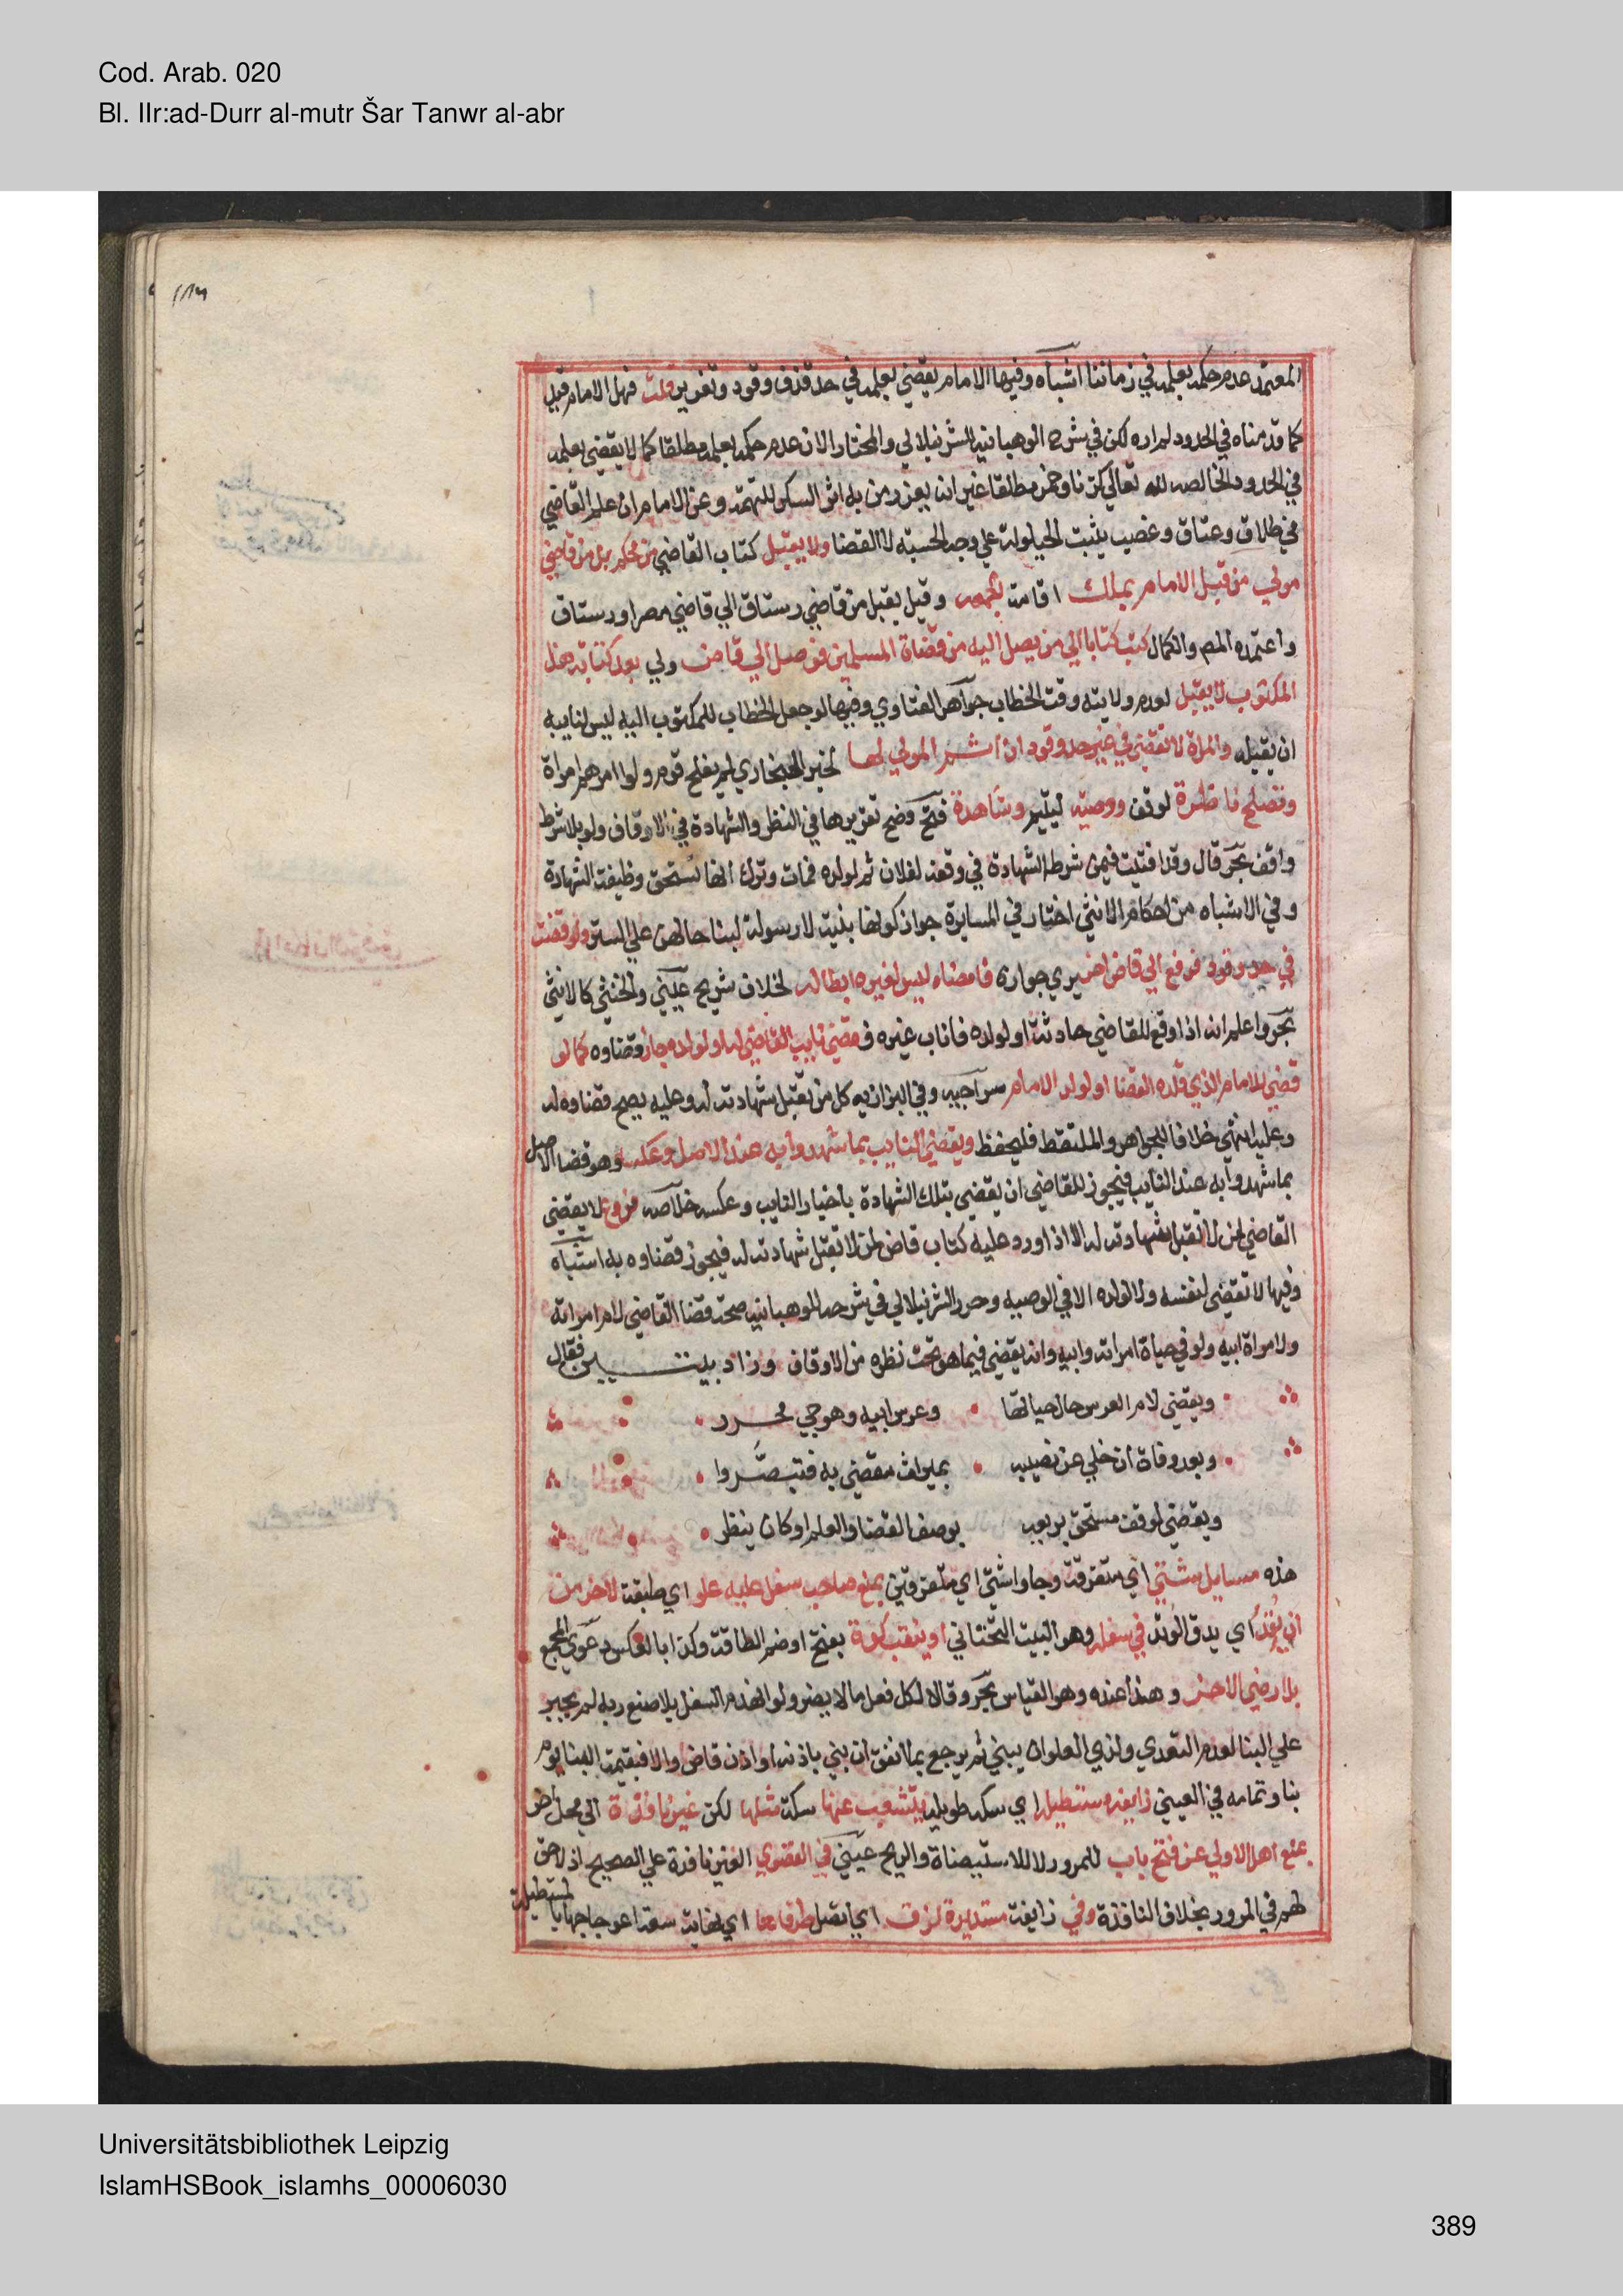 Cod. Arab. 020
Bl. IIr:ad-Durr al-mutr Šar Tanwr al-abr
المعتمد عدم حكمه بعلمه في زماننا اشباه وفيها الامام يقضي بعلمه في حد قذف وقود وتعزير قلت فهل الامام قيد
كما قدمناه في الحدود لم اره لكن في شرح الوهبانيه للشرنبلالي والمختار الان عدم حكمه بعلمه مطلقا كما لا يقضي بعلمه
في الحدود الخالصه لله تعالي كزنا وخمر مطلقا غير انه يعزر من به اثر السكر للتهمة وعن الامام ان علم القاضي
في طلاق وعتاق وغصب يثبت الحيلولة علي وجه الحسبة لا القضا ولا يقبل كتاب القاضي من محكم بل من قاضي
مولي من قبل الامام يملك اقامة الجمعه وقيل يقبل من قاضي رستاق الي قاضي مصر او رستاق
واعتمده المصـ والكمال كتب كتابا الي من يصل اليه من قضاة المسلمين فوصل الي قاض ولي بعد كتابة هذا
المكتوب لا يقبل لعدم ولايته وقت الخطاب جواهر الفتاوي وفيها لو جعل الخطاب للمكتوب اليه ليس لنايبه
ان يقبله والمراة تقضي في غير حد وقود ان اثم المولي لها لخبر البخاري لم يفلح قوم ولوا امرهم امراة
وتصلح ناظرة لوقف ووصيه ليتيم وشاهدة فتح وصح تقريرها في النظر والشهادة في الاوقاف ولو بلا شرط
واقف بحر قال وقد افتيت فيمن شرط الشهادة في وقفه لفلان ثم لولده فمات وترك انها تستحق وظيفة الشهادة
وفي الاشباه من احكام الانثي اختار في المسايرة جواز كونها نبية لا رسولة لبنا حالهن علي الستر ولو قضت
في حد وقود فرفع الي قاض اخر يري جوازه فامضاه ليس لغيره ابطاله لخلاف شريح عيني والخنثي كالانثي
بحر واعلم انه اذا وقع للقاضي حادثة او لولده فاناب غيره فقضي نايب القاضي له او لولده جاز قضاوه كما لو
قضي للامام الذي قلده القضا او لولد الامام سراجيه وفي البزازيه كل من تقبل شهادته له وعليه يصح قضاوه له
وعليه انتهي خلافا للجواهر والملتقط فليحفظ ويقضي النايب بما شهدوا به عند الاصل وعكسه وهو قضا الاصل
بما شهدوا به عند النايب فيجوز للقاضي ان يقضي بتلك الشهادة باخبار النايب وعكسه خلاصه فروع لا يقضي
القاضي لمن لا تقبل شهادته له الا اذا ورد عليه كتاب قاض لمن لا تقبل شهادته له فيجوز قضاوه به اشباه
وفيها لا تقضي لنفسه ولا لولده الا في الوصيه وحرر الشرنبلالي في شرحه للوهبانيه صحة قضا القاضي لام امراته
ولامراة ابيه ولو في حياة امراته وابيه وانه يقضي فيما هو تحت نظره من الاوقاف وزاد بيتين فقال
ويقضي لام العرس حال حياتها • وعرس ابيه وهو حي محرر
وبعد وفاة ان خلي عن نصيبه • بميراث مقضي به فتبصروا
ويقضي لوقف مستحق لريعه بوصف القضا والعلم او كان ينظر
هذه مسايل شتي اي متفرقة وجاوا شتي اي متفرقين يمنع صاحب سفل عليه علو اي طبقة لاخر من
ان يُتِدَ اي يدق الوتد في سفله وهو البيت التحتاني او ينقب كوة بفتح او ضم الطاقة وكذا بالعكس دعوي المجمع
بلا رضي الاخر وهذا عنده وهو القياس بحر وقالا لكل فعل ما لا يضر ولو انهدم السفل بلا صنع ربه لم يجبر
علي البنا لعدم التعدي ولذي العلو ان يبني ثم يرجع بما انفق ان بني باذنه او اذن قاض والا فبقيمة البنا يوم
بنا وتمامه في العيني زايغه مستطيلة اي سكه طويله يتشعب عنها سكة مثلها لكن غير نافذة الي محل اخر
يمنع اهل الاولي عن فتح باب للمرور لا للاستيضاة والريح عيني في القصوي الغير نافذة علي الصحيح اذ لا حق
لهم في المرور بخلاف النافذة وفي زايغة مستديرة لزق اي اتصل طرفاها اي نهاية سعة اعوجاجها بالمستطيلة
Universitätsbibliothek Leipzig
IslamHSBook_islamhs_00006030
389